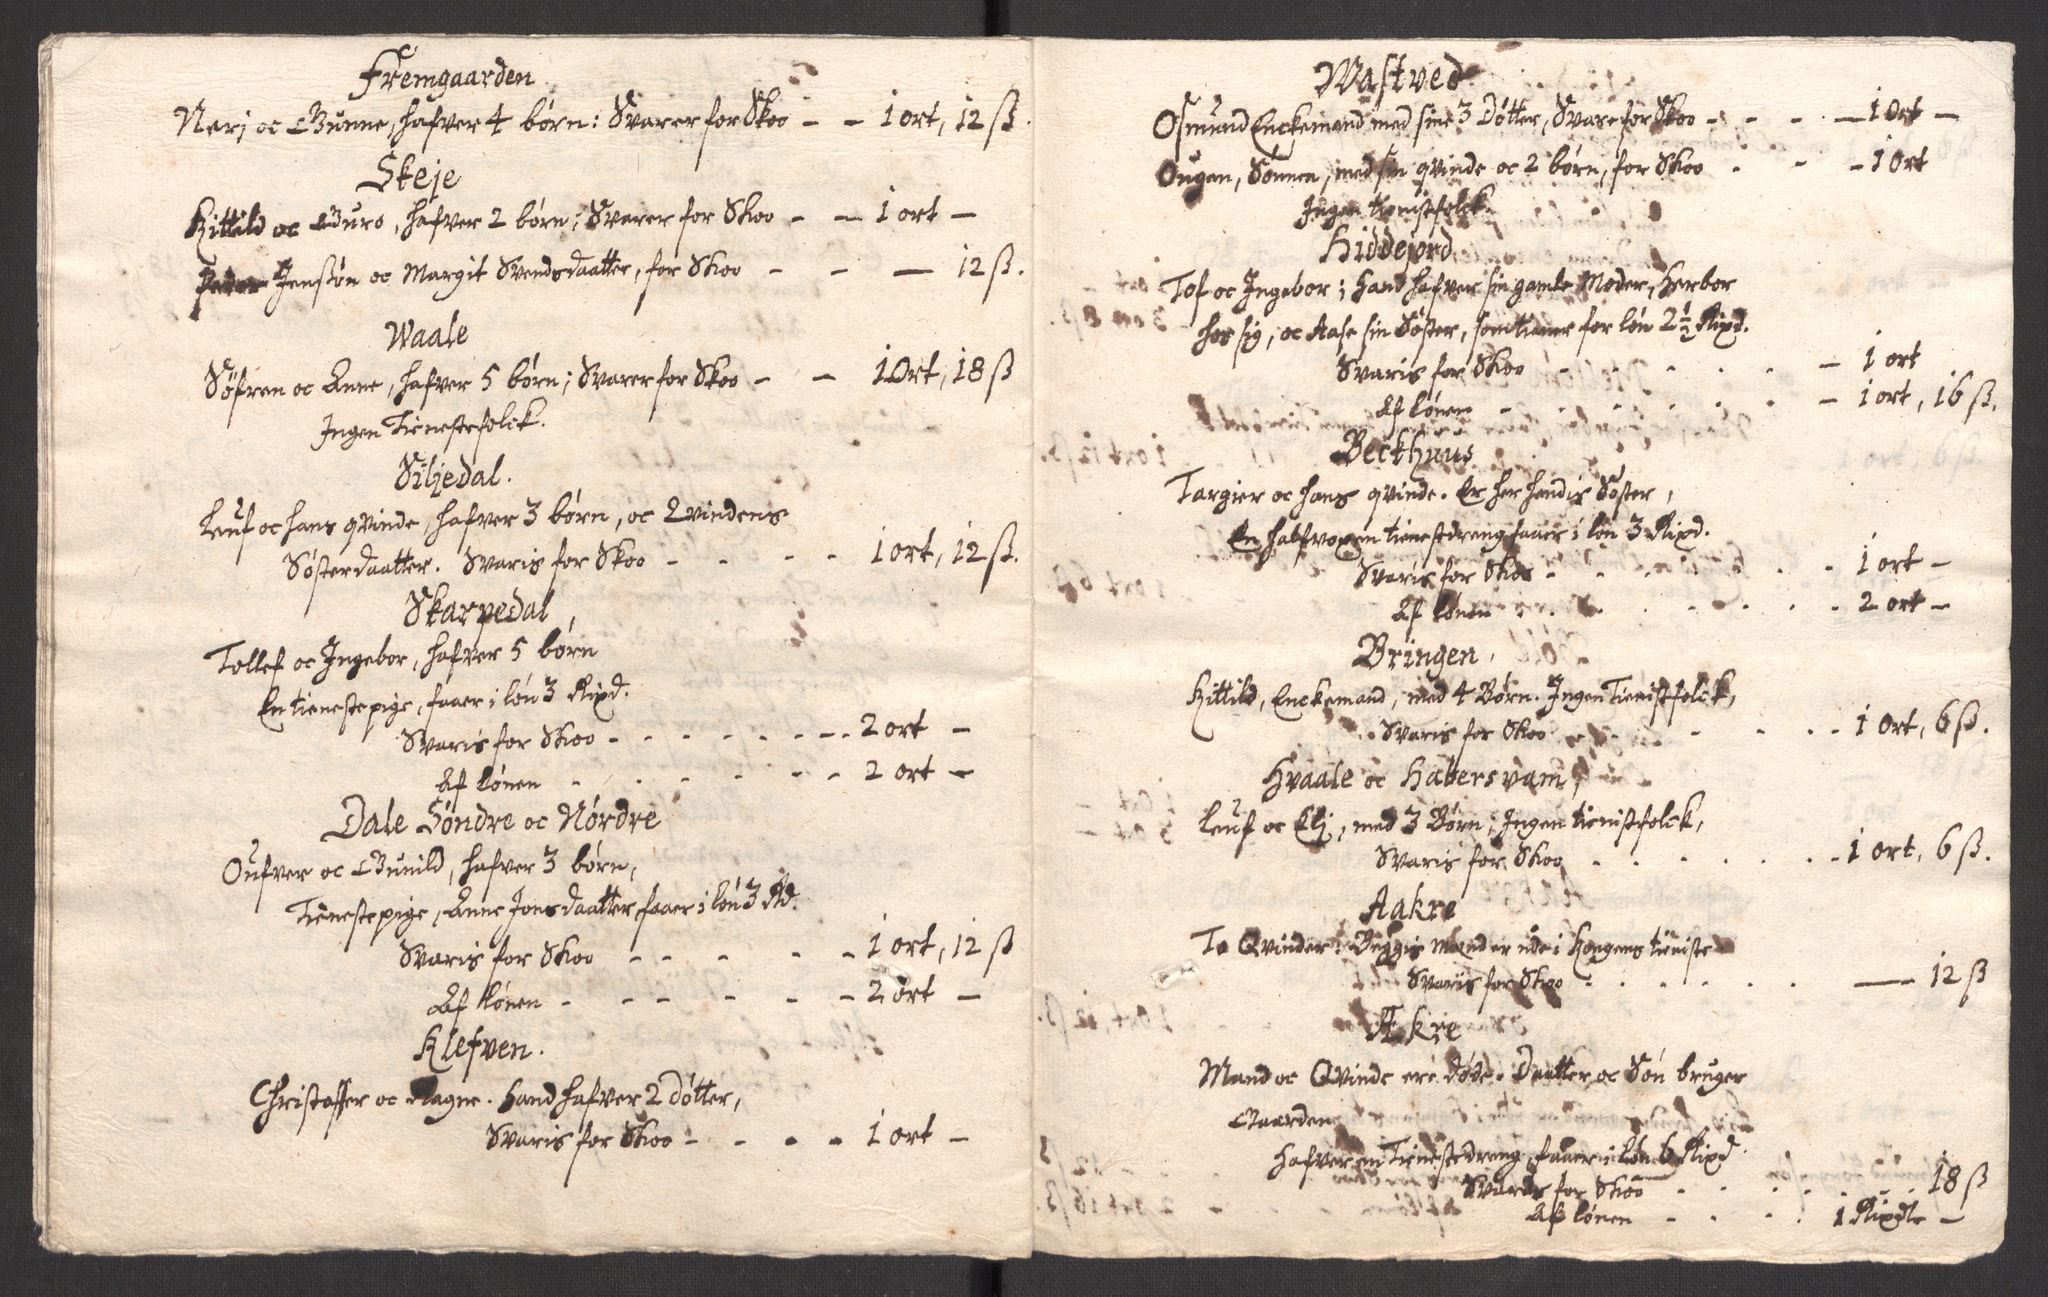 Fremgaarden
Nerj oc Gunne, hafver 4 børn: Svarer for Skoo - - 1 ort, 12 ß.
Skeje
Kittild oc Guro, hafver 2 børn; Svarer for Skoo - - 1 ort -
Peder Jenssøn oc Margit Svends daatter, for Skoo - - - 12 ß.
Waale
Søfren oc Anne, hafver 5 børn; Svarer for Skoo - - 1 Ort, 18 ß
Ingen Tienestefolck.
Siljedal.
Leuf oc hans qvinde, hafver 3 børn, oc Qvindens
Søsterdaatter. Svaris for Skoo - - - - 1 ort, 12 ß.
Skarpedal,
Tollef oc Ingebor, hafver 5 børn
En tienestepige, faaer i løn 3 Rixd.
Svaris for Skoo - - - - - - - 2 ort -
Af lønen - - - - - - 2 ort -
Dale Søndre oc Nørdre
Oufver oc Gunild, hafver 3 børn,
Tienestepige, Anne Jons daatter faaer i løn 3 Rd.
Svaris for Skoo - - - - - 1 ort, 12 ß
Af lønen - - - - - - 2 ort -
Klefven.
Christoffer oc Ragne. Hand hafver 2 døtter,
Svaris for Skoo - - - - 1 ort -
Wastved.
Osmund Enckemand med sine 3 Døtter, Svare for Skoo - - - - 1 Ort -
Ougen, Sønnen, med sin qvinde oc 2 børn, for Skoo - - - 1 Ort
Ingen tienistfolck.
Hiddejord
Tof oc Ingebor; Hand hafver sin gamle Moder, Herbor
hos sig, oc Aase sin Søster, som tiener for løn 2½ Rixd.
Svaris for Skoo - - - - - - 1 ort
Af lønen - - - - - - - 1 ort, 16 ß.
Beckhuus
Targier oc hans qvinde. Er her hendis Søster,
En halfvoxen tienestdreng faaer i løn 3 Rixd.
Svaris for Skoo - - - - - - - 1 ort -
Af lønen - - - - - - - 2 ort -
Bringen,
Kittild, Enckemand, med 4 Børn. Ingen Tienistfolck,
Svaris for Skoo - - - - - 1 Ort, 6 ß.
Hvaale oc Habersvam,
Leuf oc Elj, med 3 Børn; Ingen tienistfolck,
Svaris for Skoo - - - - - - - 1 ort, 6 ß.
Aakre
To Qvinder: Beggis mænd er ude i Kongens tieniste
Svaris for Skoo - - - - - - 12 ß
Akre
Mand oc Qvinde ere døde. Daatter oc Søn bruger
Gaarden
hafver en Tienestedreng, faaer i løn 6 Rixd.
Svaris for Skoo - - - - 18 ß
Af lønen - - - - 1 Rixdlr -